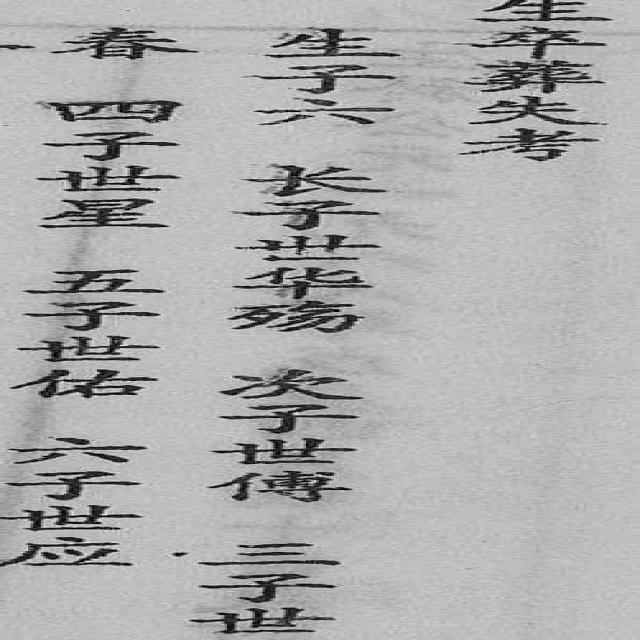 生卒葬失考
生子六 长子世华殇 次子世傅 三子世
春 四子世星 五子世佑 六子世应